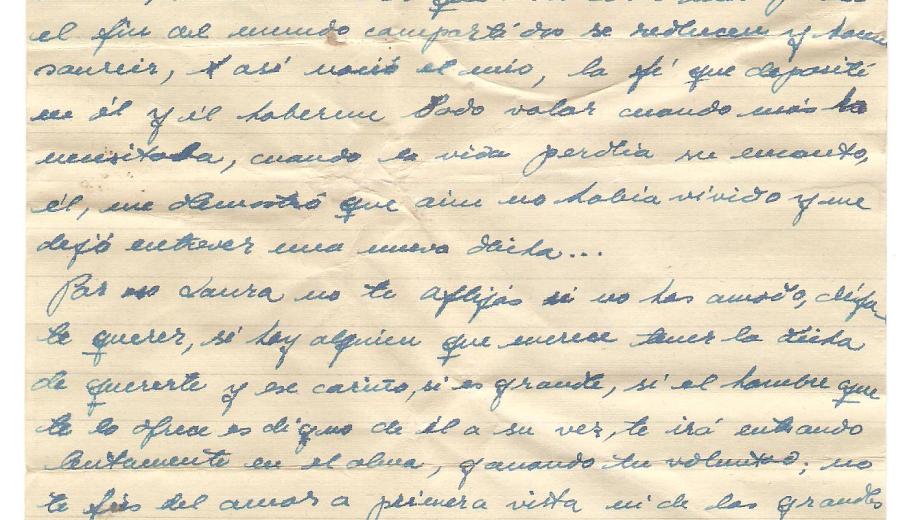 el fin del mundo compartidos se reducen y hacen
sonreir, y así nació el mío, la fé que deposité
en él y el haberme dado valor cuando más la
necesitaba, cuando la vida perdía su encanto,
él, me demostró que aún no había vivido y me
dejó entrever una nueva dicha...
Por Laura no te aflijás si no has amado, dejate
te querer, si hay alguien que merece tener la dicha
de quererte y ese cariño, si es grande, si el hombre que
te lo ofrece es digno de él a su vez, te irá entrando
lentamente en el alma, ganando tu voluntad; no
te fíes del amor a primera vista ni de los grandes